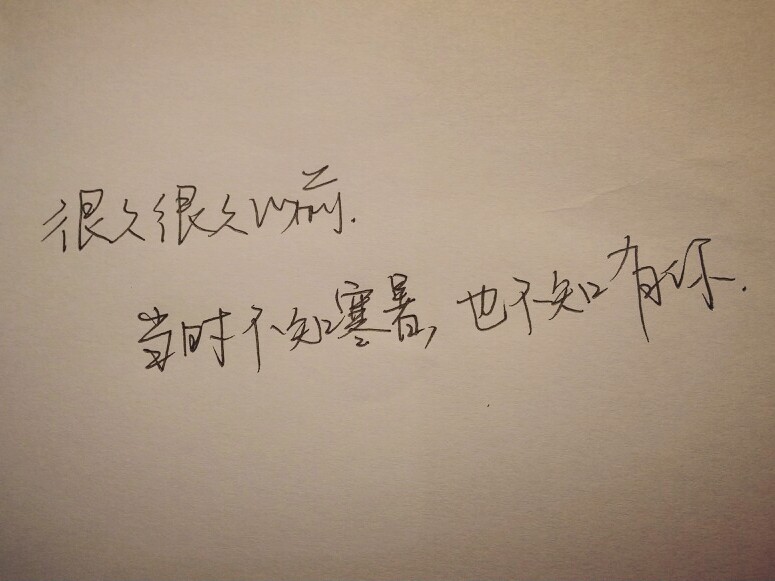 很久很久以前.
当时不知寒暑,也不知有你.